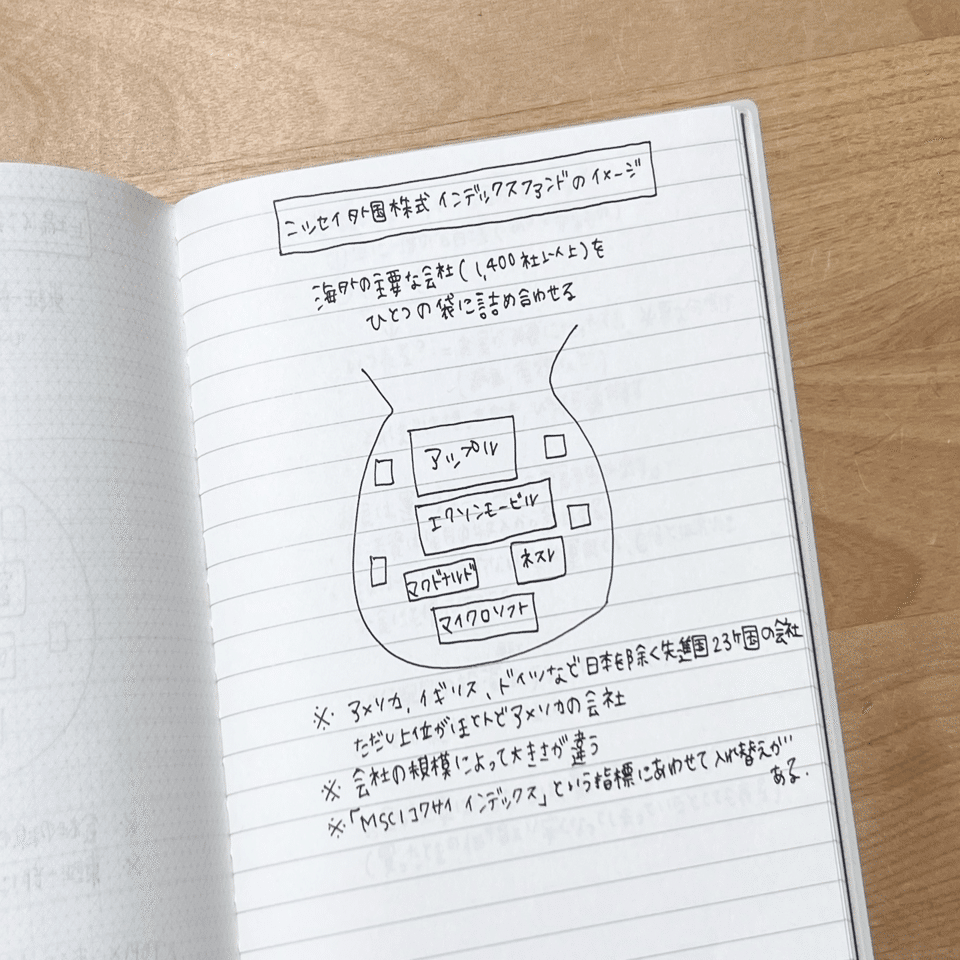 ニッセイ外国株式インデックスファンドのイメージ
海外の主要な会社(1,400社以上)を
ひとつの袋に詰め合わせる
アップル
エクソンモービル
ネスレ
マクドナルド
マイクロソフト
※ アメリカ、イギリス、ドイツなど日本を除く先進国23ヶ国の会社
ただし上位がほとんどアメリカの会社
※ 会社の規模によって大きさが違う
※「MSCIコクサイ インデックス」という指標にあわせて入れ替えが
ある.